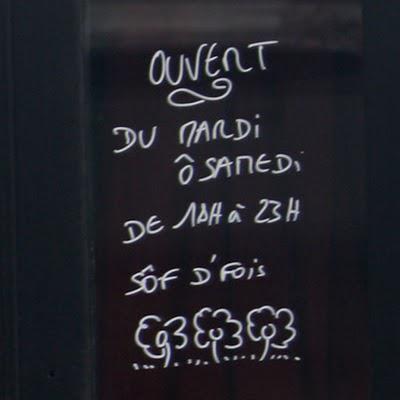 OUVERT
DU MARDi
Ô SAMEDi
DE 18H à 23H
SÔF D'FOiS